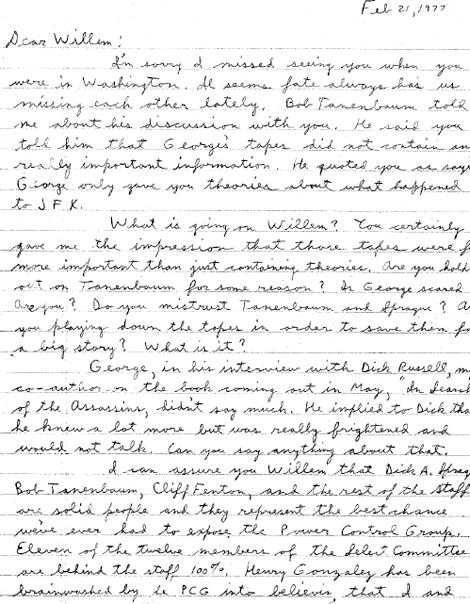 Feb 21, 1977
Dear Willem:
I'm sorry I missed seeing you when you
were in Washington. It seems fate always has us
missing each other lately. Bob Tanenbaum told
me about his discussion with you. He said you
told him that George's tapes did not contain an
really important information. He quoted you as say
George only gave you theories about what happened
to JFK.
What is going on Willem? You certainly
gave me the impression that those tapes were f
more important than just containing theories. Are you hold
out on Tanenbaum for some reason? Is George scared
Are you? Do you mistrust Tanenbaum and Sprague? A
you playing down the tapes in order to save them fo
a big story? What is it?
George, in his interview with Dick Russell, m
co-author on the book coming out in May, "In Search
of the Assassins, didn't say much. He implied to Dick tha
he knew a lot more but was really frightened and
would not talk. Can you say anything about that.
I can assure you Willem that Dick A. Sprag
Bob Tanenbaum, Cliff Fenton, and the rest of the staff
are solid people and they represent the best chance
we've ever had to expose the Power Control Group.
Eleven of the twelve members of the Select Committee
are behind the staff 100%. Henry Gonzalez has been
brainwashed by the PCG into believin that I and